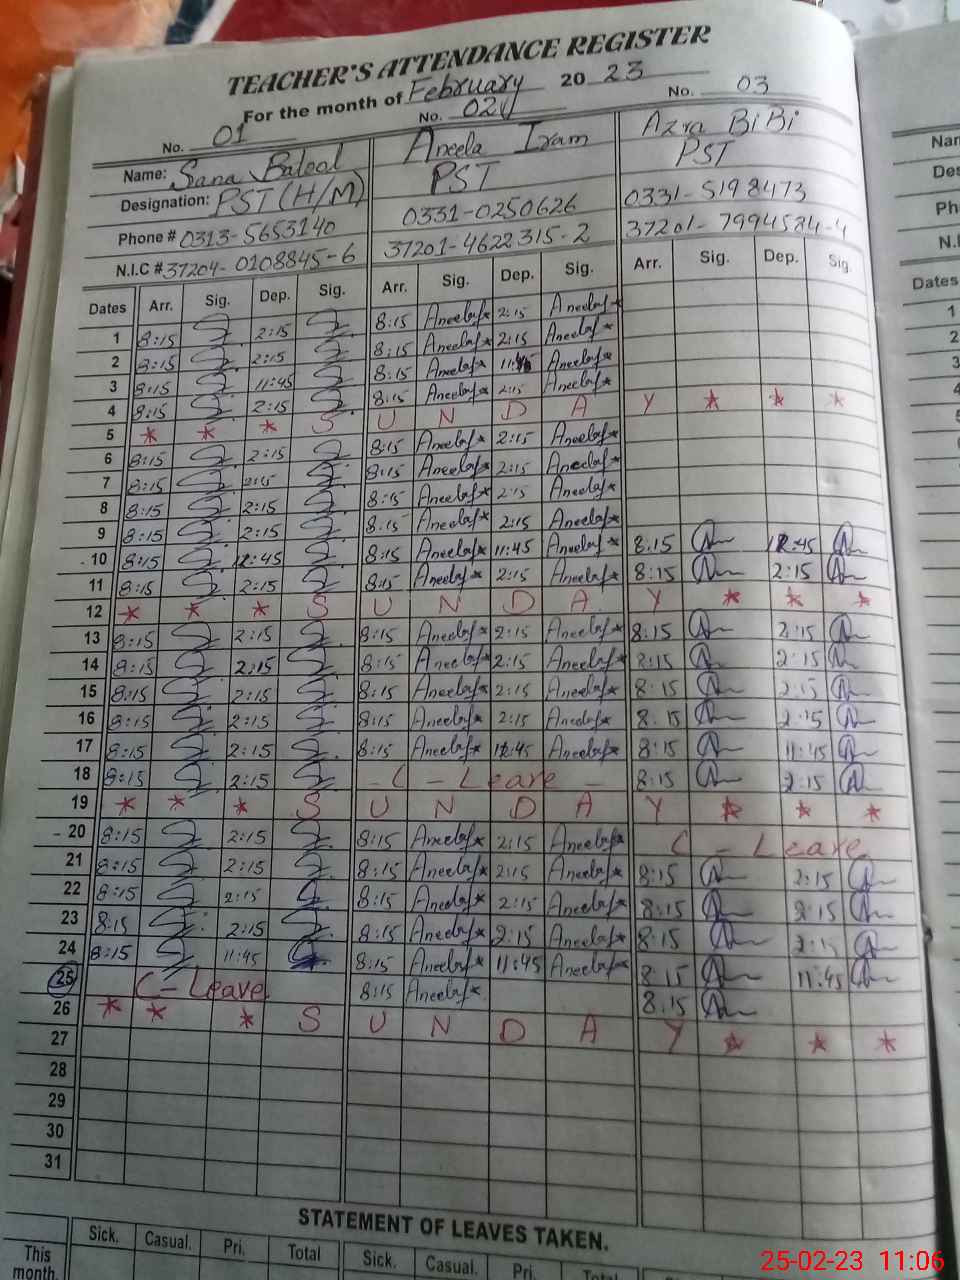 TEACHER'S ATTENDANCE REGISTER
For the month of February 2023
No. 01 No. 02 No. 03
Name: Sana Batool Aneela Iram Azra BiBi
Designation: PST (H/M) PST PST
Phone # 0313-5653140 0331-0250626 0331-5198473
N.I.C # 37204-0108845-6 37201-4622315-2 37201-7994584-4
Dates Arr. Sig. Dep. Sig. Arr. Sig. Dep. Sig. Arr. Sig. Dep. Sig.
1 8:15 2:15 8:15 Aneela 2:15 Aneela
2 8:15 2:15 8:15 Aneela 2:15 Aneela
3 8:15 11:45 8:15 Aneela 11:45 Aneela
4 8:15 2:15 8:15 Aneela 2:15 Aneela
5 * * * S U N D A Y * * *
6 8:15 2:15 8:15 Aneela 2:15 Aneela
7 8:15 2:15 8:15 Aneela 2:15 Aneela
8 8:15 2:15 8:15 Aneela 2:15 Aneela
9 8:15 2:15 8:15 Aneela 2:15 Aneela
10 8:15 12:45 8:15 Aneela 11:45 Aneela 8:15 12:45
11 8:15 2:15 8:15 Aneela 2:15 Aneela 8:15 2:15
12 * * * S U N D A Y * * *
13 8:15 2:15 8:15 Aneela 2:15 Aneela 8:15 2:15
14 8:15 2:15 8:15 Aneela 2:15 Aneela 8:15 2:15
15 8:15 2:15 8:15 Aneela 2:15 Aneela 8:15 2:15
16 8:15 2:15 8:15 Aneela 2:15 Aneela 8:15 2:15
17 8:15 2:15 8:15 Aneela 12:45 Aneela 8:15 11:45
18 8:15 2:15 - C - Leave - 8:15 2:15
19 * * * S U N D A Y * * *
20 8:15 2:15 8:15 Aneela 2:15 Aneela C - Leave
21 8:15 2:15 8:15 Aneela 2:15 Aneela 8:15 2:15
22 8:15 2:15 8:15 Aneela 2:15 Aneela 8:15 2:15
23 8:15 2:15 8:15 Aneela 2:15 Aneela 8:15 2:15
24 8:15 11:45 8:15 Aneela 11:45 Aneela 8:15 11:45
25 C - Leave 8:15 Aneela 8:15
26 * * * S U N D A Y * * *
27
28
29
30
31
STATEMENT OF LEAVES TAKEN.
Sick. Casual. Pri. Total Sick. Casual. Pri. Total
This month.
25-02-23 11:06